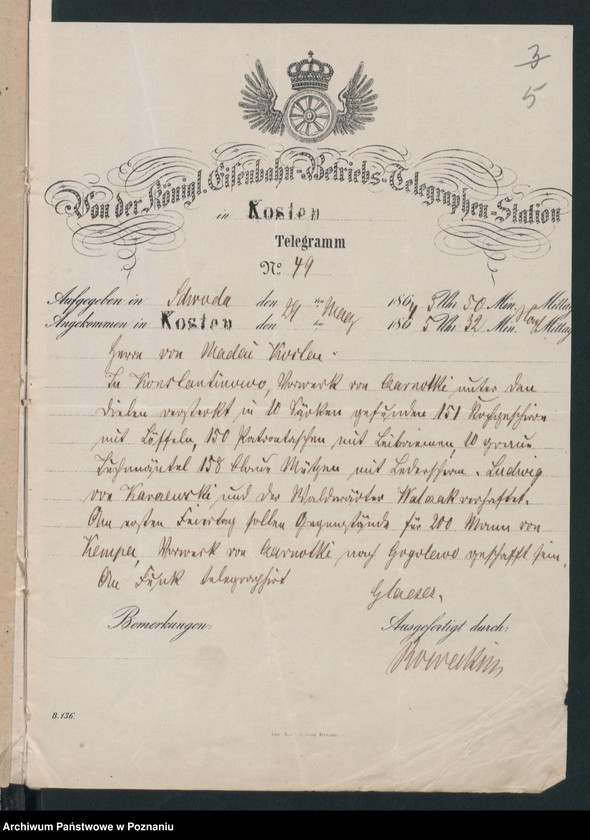 3
5
Von der Königl. Eisenbahn-Betriebs-Telegraphen-Station
in Kosten
Telegramm
No 49
Aufgegeben in Schroda den 29 ten März 1864 3 Uhr 50 Min. Mittag
Angekommen in Kosten den ten 186 5 Uhr 32 Min. Mittag
Herrn von Madai Kosten.
In Konstantinowo, Vorwerk von Czarnotki unter den
Dielen versteckt in 10 Säcken gefunden 151 Kochgeschirre
mit Löffeln, 150 Patrontaschen mit Leibriemen, 10 graue
Tuchmäntel 158 blaue Mützen mit Lederschirm. Ludwig
von Karczewski und der Waldwärter Walczak verhaftet.
Am ersten Feiertag sollen Gegenstände für 200 Mann von
Kempa, Vorwerk von Czarnotki nach Gogolewo geschafft sein.
An Funk telegraphirt
Glaeser.
Bemerkungen:
Ausgefertigt durch:
B. 136.
Archiwum Państwowe w Poznaniu